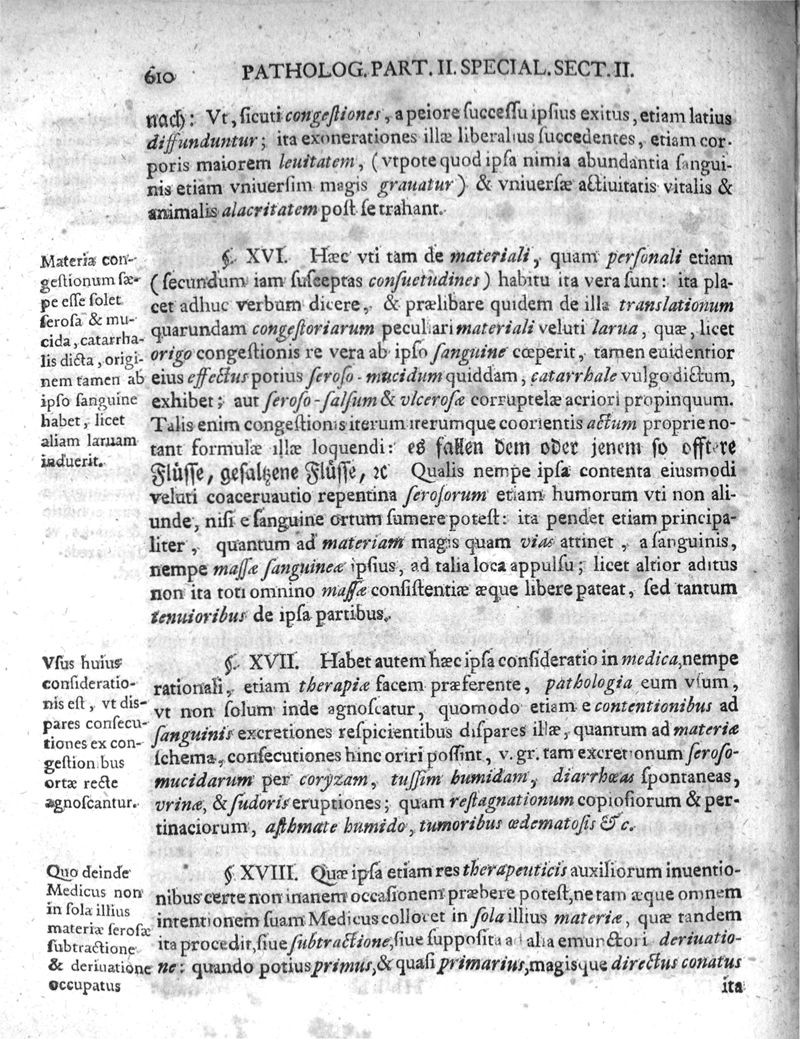 610 PATHOLOG. PART. II. SPECIAL. SECT. II.
nach: Vt, ſicuti congeſtiones, a peiore ſucceſſu ipſius exitus, etiam latius
diffunduntur; ita exonerationes illæ liberalius ſuccedentes, etiam cor-
poris maiorem leuitatem, (vtpote quod ipſa nimia abundantia ſangui-
nis etiam vniuerſim magis grauatur) & vniuerſæ actiuitatis vitalis &
animalis alacritatem poſt ſe trahant.
Materia con-
geſtionum ſæ-
pe eſſe ſolet
ſeroſa & mu-
cida, catarrha-
lis dicta, origi-
nem tamen ab
ipſo ſanguine
habet, licet
aliam laruam
induerit.
§. XVI. Hæc vti tam de materiali, quam perſonali etiam
(ſecundum iam ſuſceptas conſuetudines) habitu ita vera ſunt: ita pla-
cet adhuc verbum dicere, & prælibare quidem de illa translationum
quarundam congeſtoriarum peculiari materiali veluti larua, quæ, licet
origo congeſtionis re vera ab ipſo ſanguine cœperit, tamen euidentior
eius effectus potius ſeroſo-mucidum quiddam, catarrhale vulgo dictum,
exhibet; aut ſeroſo-ſalſum & vlceroſæ corruptelæ acriori propinquum.
Talis enim congeſtionis iterum iterumque coorientis actum proprie no-
tant formulæ illæ loquendi: es fallen dem oder jenem ſo offtere
Flüſſe, geſaltzene Flüſſe, ꝛc Qualis nempe ipſa contenta eiusmodi
veluti coaceruautio repentina ſeroſorum etiam humorum vti non ali-
unde, niſi e ſanguine ortum ſumere poteſt: ita pendet etiam principa-
liter, quantum ad materiam magis quam vias attinet, a ſanguinis,
nempe maſſæ ſanguineæ ipſius, ad talia loca appulſu; licet altior aditus
non ita toti omnino maſſæ conſiſtentiæ æque libere pateat, ſed tantum
tenuioribus de ipſa partibus.
Vſus huius
conſideratio-
nis eſt, vt diſ-
pares conſecu-
tiones ex con-
geſtionibus
ortæ recte
agnoſcantur.
§. XVII. Habet autem hæc ipſa conſideratio in medica, nempe
rationali, etiam therapiæ facem præferente, pathologia eum vſum,
vt non ſolum inde agnoſcatur, quomodo etiam e contentionibus ad
ſanguinis excretiones reſpicientibus diſpares illæ, quantum ad materiæ
ſchema, conſecutiones hinc oriri poſſint, v. gr. tam excretionum ſeroſo-
mucidarum per coryzam, tuſſim humidam, diarrhœas ſpontaneas,
vrinæ, & ſudoris eruptiones; quam reſtagnationum copioſiorum & per-
tinaciorum, aſthmate humido, tumoribus œdematoſis &c.
Quo deinde
Medicus non
in ſola illius
materiæ ſeroſæ
ſubtractione
& deriuatione
occupatus
§. XVIII. Quæ ipſa etiam res therapeuticis auxiliorum inuentio-
nibus certe non inanem occaſionem præbere poteſt, ne tam æque omnem
intentionem ſuam Medicus collocet in ſola illius materiæ, quæ tandem
ita procedit, ſiue ſubtractione, ſiue ſuppoſita ad alia emunctori deriuatio-
ne: quando potius primus, & quaſi primarius, magisque directus conatus
ita